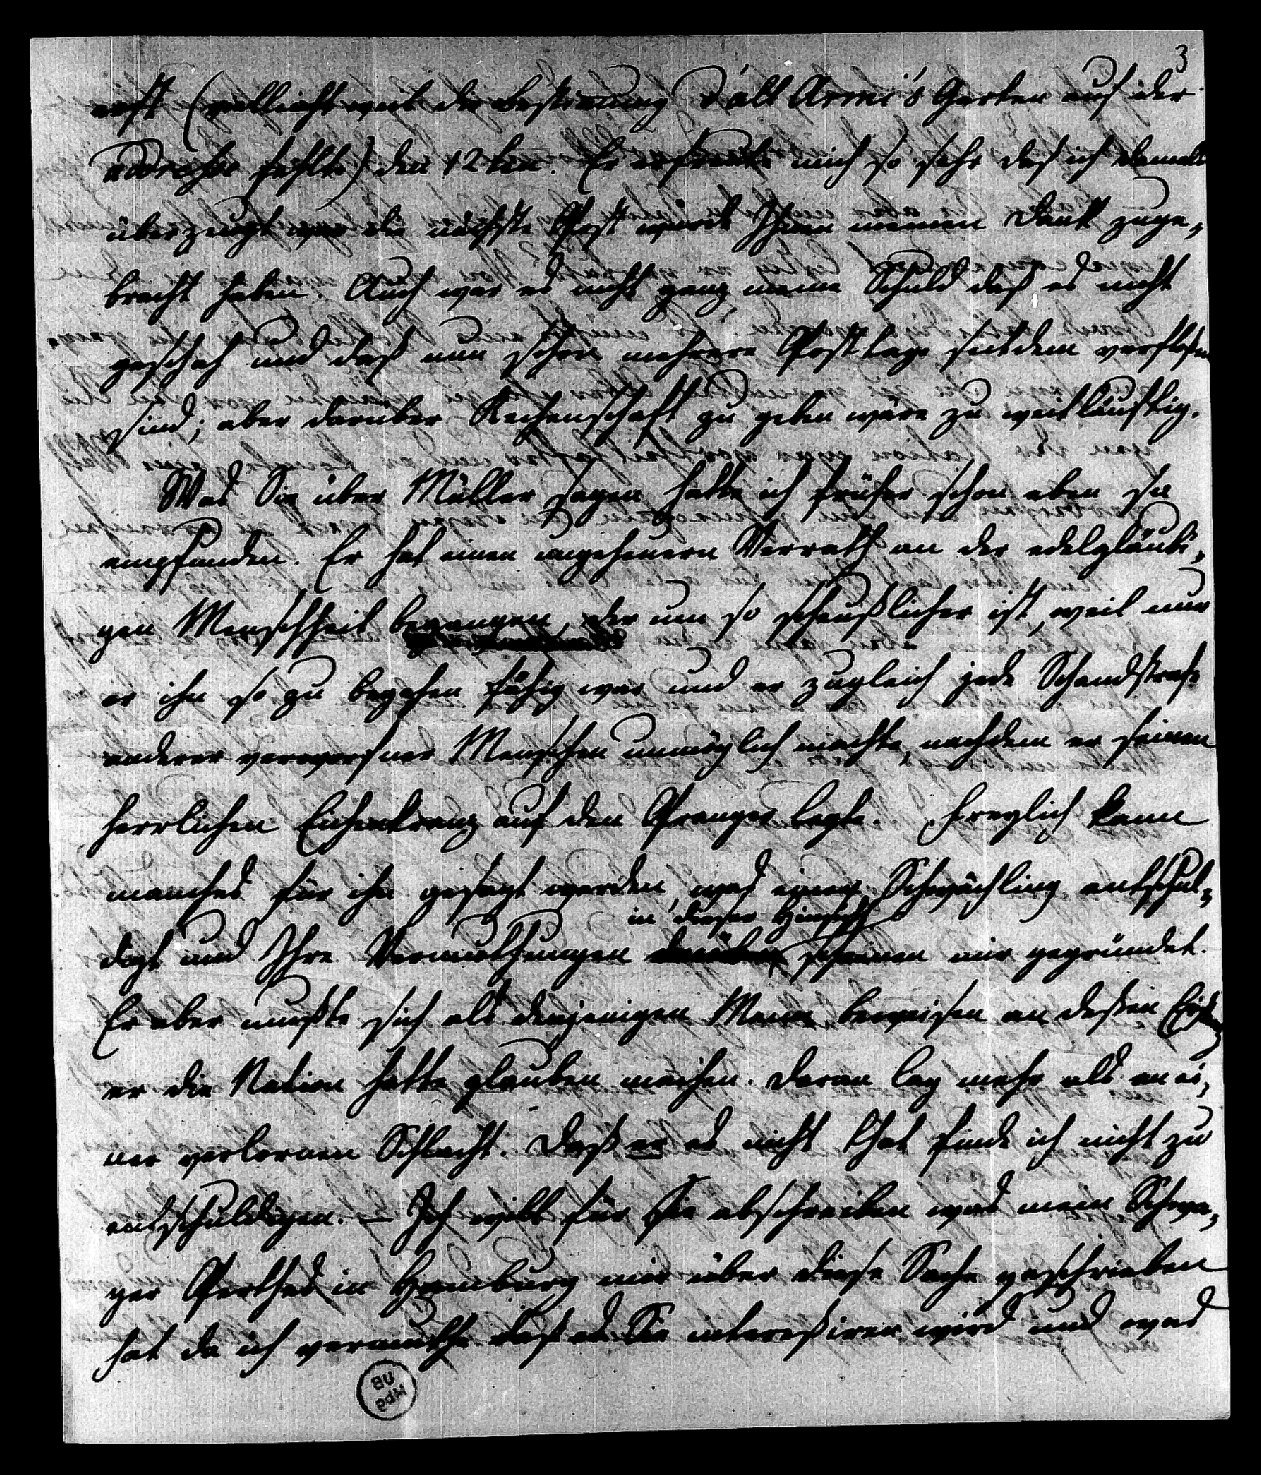 3
erst (vielleicht weil die Bestimmung Dall Armi's Garten auf der
Addresse fehlte) den 12ten. Er erfreute mich so sehr daß ich damals
überzeugt war die nächste Post würde Ihnen meinen Dank zuge-
bracht haben. Auch war es nicht ganz meine Schuld daß es nicht
geschah und daß nun schon mehrere Posttage seitdem verfloßen
sind; aber darüber Rechenschaft zu geben wäre zu weitläuftig.
Was Sie über Müller sagen hatte ich früher schon eben so
empfunden. Er hat einen ungeheuern Verrath an der edelgläubi-
gen Menschheit begangen, der um so scheuslicher ist, weil nur
er ihn so zu begehen fähig war und er zugleich jede Schandstrafe
anderer verworfner Menschen unmöglich machte, nachdem er seinen
herrlichen Eichenkranz auf den Pranger legte. Freylich kann
manches für ihn gesagt werden was einen Schwächling entschul-
in dieser Hinsicht
digt und Ihre Vermuthungen scheinen mir gegründet.
Er aber mußte sich als denjenigen Mann beweisen an deßen
er die Nation hatte glauben machen. Daran lag mehr als an ei-
ner verlornen Schlacht. Daß er es nicht that finde ich nicht zu
entschuldigen. – Ich will für Sie abschreiben was mein Schwa-
ger Perthes in Hamburg mir über diese Sache geschrieben
hat da ich vermuthe daß es Sie intereßiren wird und was